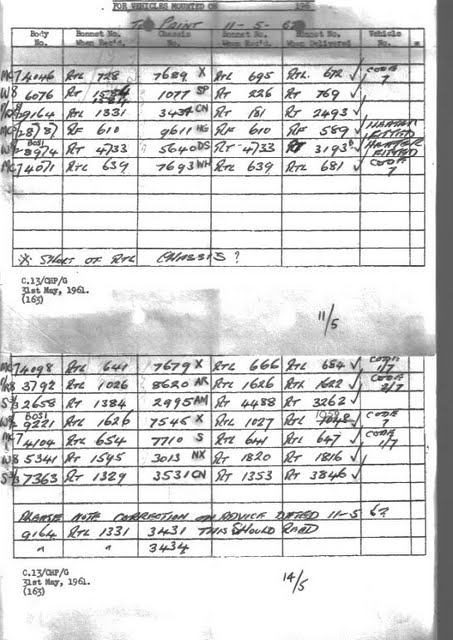 FOR VEHICLES MOUNTED ON 196
TO PRINT 11-5-62
Body No. Bonnet No. When Rec'd. Chassis No. Bonnet No. When Rec'd. Bonnet No. When Delivered Vehicle No.
MC7 4046 RTL 728 7689 X RTL 695 RTL 672 ✓ CODE 7
W8 6076 RT 1584 1077 SP RT 226 RT 769 ✓
1584
9164 RTL 1331 3437 CN RT 181 RT 2493 ✓
2878 RF 610 9611 RF 610 RF 589 ✓ HEATER FITTED
BOSI
8974 RT 4733 5640 DS RT 4733 RT 3193 ✓ HEATER FITTED
MC7 4071 RTL 639 7693 WH RTL 639 RTL 681 ✓ CODE 7
* SHORT OF RTL CHASSIS?
C.13/CHP/G
31st May, 1961.
(163)
11/5
MC7 4098 RTL 641 7679 X RTL 666 RTL 684 ✓ CODE 1/7
3792 RTL 1026 8620 AR RTL 1626 RTL 1622 ✓ CODE 2/7
2658 RT 1384 2995 AM RT 4488 RT 3262 ✓
BOSI 1028
9221 RTL 1626 7545 X RTL 1027 RTL ✓ CODE 7
4104 RTL 654 7710 S RTL 641 RTL 647 ✓ CODE 1/7
W8 5341 RT 1595 3013 NX RT 1820 RT 1816 ✓
7363 RT 1329 3531 CN RT 1353 RT 3846 ✓
PLEASE NOTE CORRECTION ON ADVICE DATED 11-5 62
9164 RTL 1331 3431 THIS SHOULD READ
" " 3434
C.13/CHP/G
31st May, 1961.
(163)
14/5